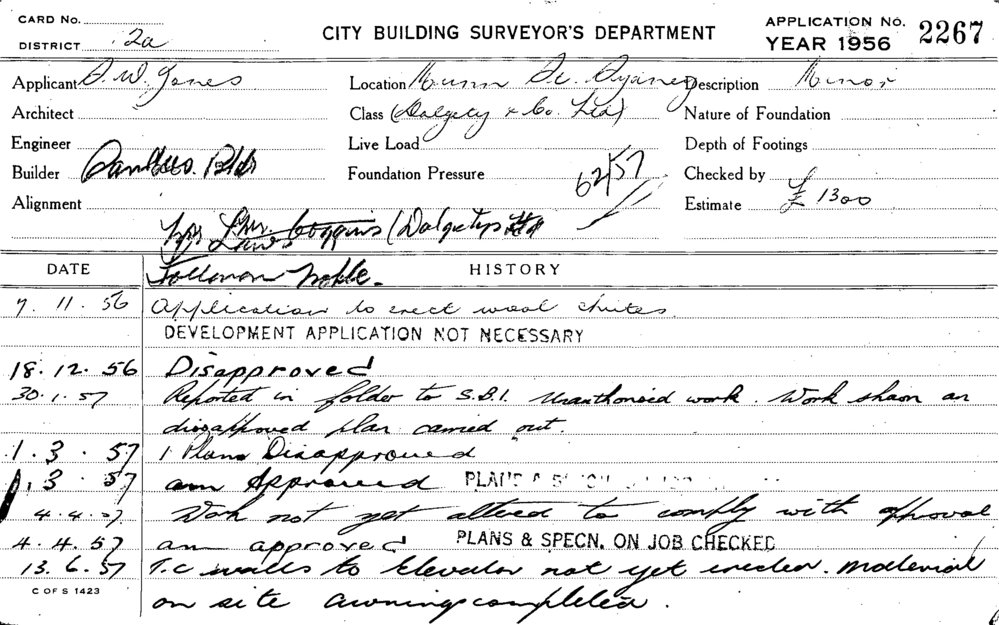 CARD No.
DISTRICT 2a
CITY BUILDING SURVEYOR'S DEPARTMENT
APPLICATION No. 2267
YEAR 1956
Applicant D. W. Jones Location St. Pyrmont Description Minor
Architect Class (Dalgety & Co. Ltd) Nature of Foundation
Engineer Live Load Depth of Footings
Builder Bldr Foundation Pressure 62/57 Checked by
Alignment Estimate £ 1300
Coggins (Dalgetys Ltd
DATE HISTORY
7. 11. 56 Application to erect wool chutes.
DEVELOPMENT APPLICATION NOT NECESSARY
18. 12. 56 Disapproved
30. 1. 57 Reported in folder to S.B.I. unauthorised work. Work shown on
disapproved plan carried out.
1. 3. 57 1 Plan Disapproved
1. 3. 57 am Approved PLANS
4. 4. 57 Work not yet altered to comply with approval
4. 4. 57 am approved PLANS & SPECN. ON JOB CHECKED
13. 6. 57 T.C walls to Elevator not yet erected. Material
C OF S 1423
on site awnings completed.